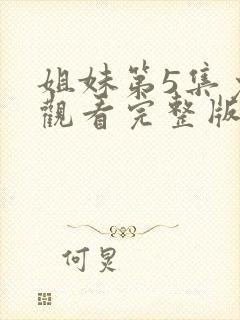 姐妹第5集
觀看完整版
何炅